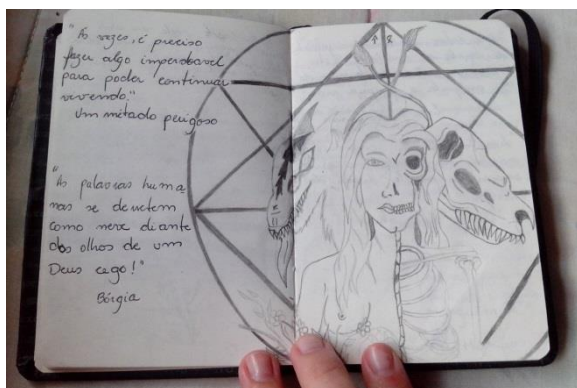 "Às vezes, é preciso
fazer algo imperdoável
para poder continuar
vivendo."
Um método perigoso
"As palavras huma
nas se derretem
como neve diante
dos olhos de um
Deus cego!"
Bórgia